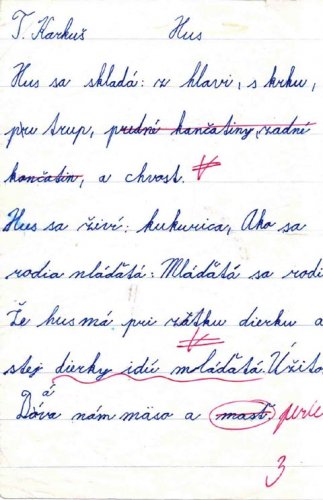 T. Karkuš Hus
Hus sa skladá: z hlavi, s krku,
pri trup, predné končatiny, zadné
končatin, a chvost. V
Hus sa živí: kukurica, Ako sa
rodia mláďatá: Mláďatá sa rodi
Že hus má pri zatku dierku a
stej dierky idú mláďatá. Úžito
Dává nám mäso a masť. perie
3